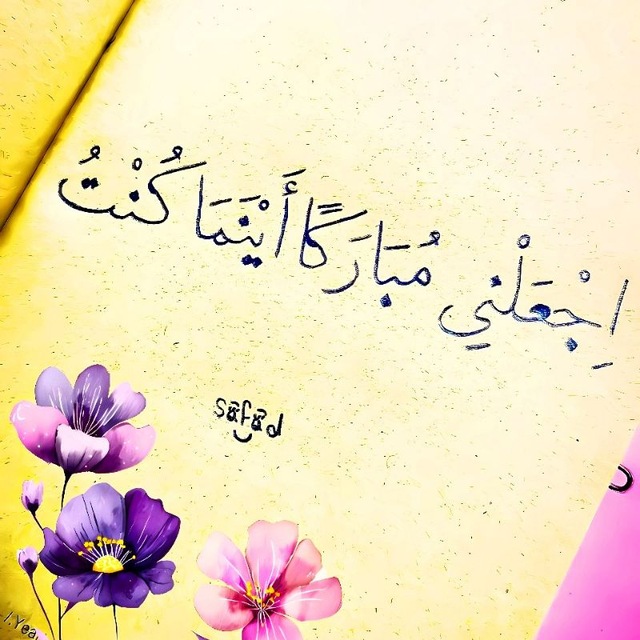 اِجْعَلْني مُبَارَكًا أَيْنَمَا كُنْتُ
safad